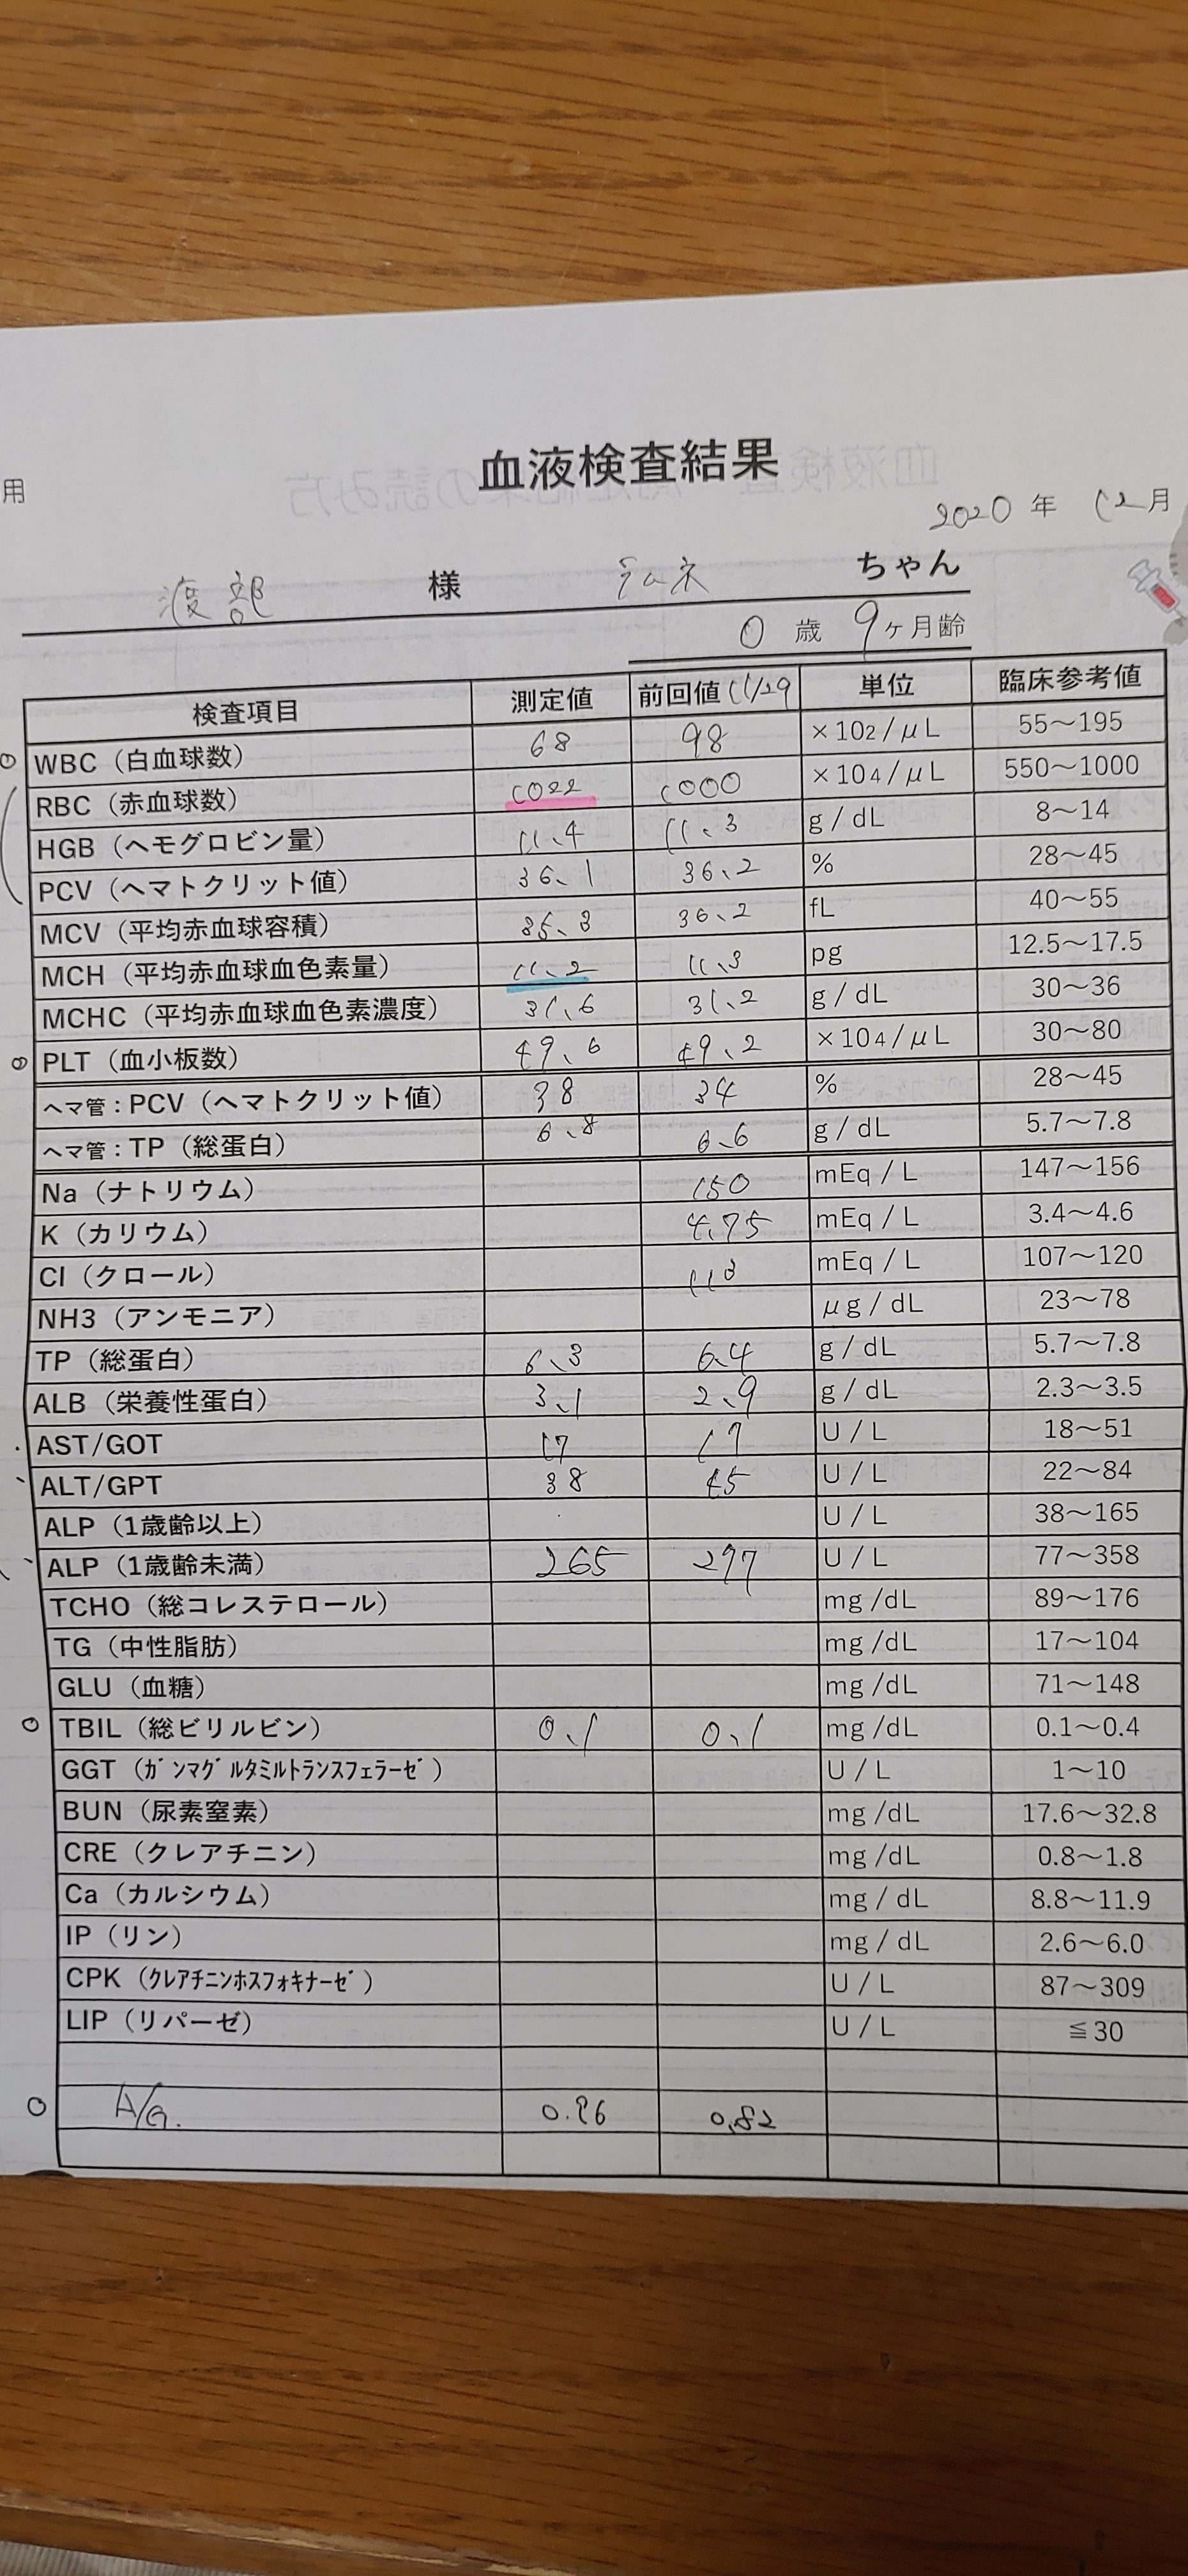 血液検査結果
用
2020 年 12月
渡部 様 ラムネ ちゃん
0 歳 9ヶ月齢
検査項目 測定値 前回値 11/29 単位 臨床参考値
WBC（白血球数） 68 98 ×102/μL 55〜195
RBC（赤血球数） 1022 1000 ×104/μL 550〜1000
HGB（ヘモグロビン量） 11.4 11.3 g/dL 8〜14
PCV（ヘマトクリット値） 36.1 36.2 % 28〜45
MCV（平均赤血球容積） 35.3 36.2 fL 40〜55
MCH（平均赤血球血色素量） 11.2 11.3 pg 12.5〜17.5
MCHC（平均赤血球血色素濃度） 31.6 31.2 g/dL 30〜36
PLT（血小板数） 49.6 49.2 ×104/μL 30〜80
ヘマ管：PCV（ヘマトクリット値） 38 34 % 28〜45
ヘマ管：TP（総蛋白） 6.8 6.6 g/dL 5.7〜7.8
Na（ナトリウム） 150 mEq/L 147〜156
K（カリウム） 4.75 mEq/L 3.4〜4.6
Cl（クロール） mEq/L 107〜120
NH3（アンモニア） μg/dL 23〜78
TP（総蛋白） 6.3 6.4 g/dL 5.7〜7.8
ALB（栄養性蛋白） 3.1 2.9 g/dL 2.3〜3.5
AST/GOT 17 U/L 18〜51
ALT/GPT 38 45 U/L 22〜84
ALP（1歳齢以上） U/L 38〜165
ALP（1歳齢未満） 265 297 U/L 77〜358
TCHO（総コレステロール） mg/dL 89〜176
TG（中性脂肪） mg/dL 17〜104
GLU（血糖） mg/dL 71〜148
TBIL（総ビリルビン） 0.1 0.1 mg/dL 0.1〜0.4
GGT（ｶﾞﾝﾏｸﾞﾙﾀﾐﾙﾄﾗﾝｽﾌｪﾗｰｾﾞ） U/L 1〜10
BUN（尿素窒素） mg/dL 17.6〜32.8
CRE（クレアチニン） mg/dL 0.8〜1.8
Ca（カルシウム） mg/dL 8.8〜11.9
IP（リン） mg/dL 2.6〜6.0
CPK（ｸﾚｱﾁﾆﾝﾎｽﾌｫｷﾅｰｾﾞ） U/L 87〜309
LIP（リパーゼ） U/L ≦30
A/G. 0.82